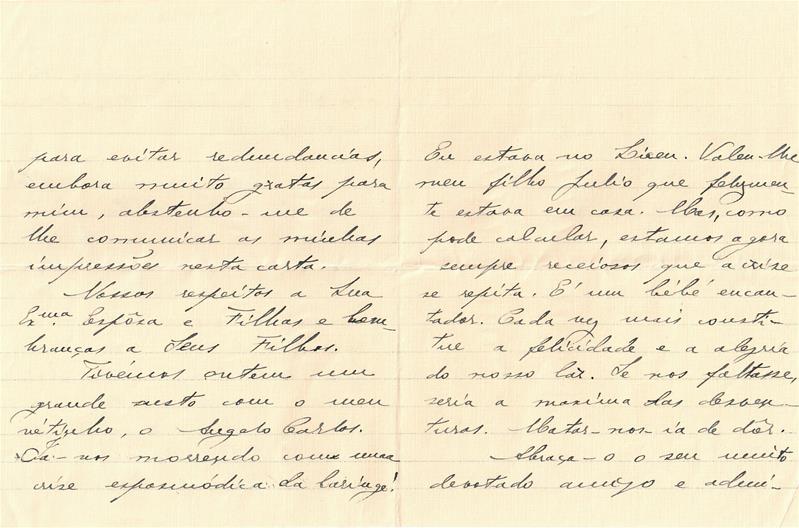 para evitar redundancias,
embora muito gratas para
mim, abstenho-me de
lhe comunicar as minhas
impressões nesta carta.
Nossos respeitos a Sua
Ex.ma Espôsa e Filhas e lem-
branças a Seus Filhos.
Tivemos ontem um
grande susto com o meu
nètinho, o Angelo Carlos.
Ia-nos morrendo com uma
crise espasmódica da laringe!
Eu estava no Liceu. Valeu-lhe
meu filho Julio que felizmen-
te estava em casa. Mas, como
pode calcular, estamos agora
sempre receiosos que a crise
se repita. É um bébé encan-
tador. Cada vez mais consti-
tue a felicidade e a alegria
do nosso lar. Se nos faltasse,
seria a maxima das desven-
turas. Matar-nos-ia de dôr.
Abraça-o o seu muito
devotado amigo e admi-